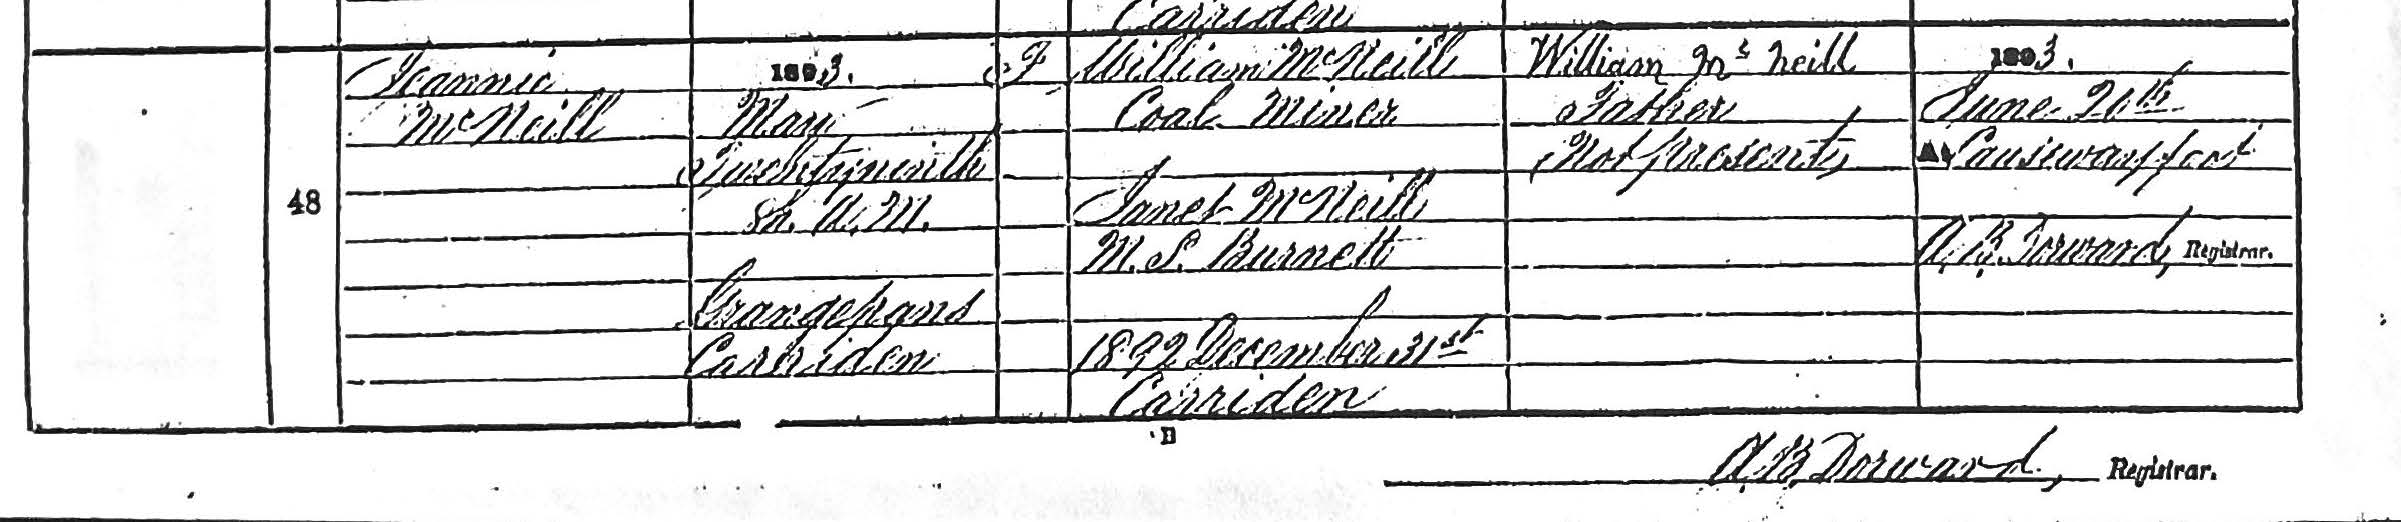 Carriden
48
Jeannie
McNeill
1893.
May
Twentyninth
5h. A.M.
Grangepans
Carriden
F
William McNeill
Coal Miner
Janet McNeill
M.S. Burnett
1892 December 31st
Carriden
William Mc Neill
Father
(Not present)
1893.
June 20th
At Causewayfoot
A. B. Dorward, Registrar.
B
A. B. Dorward, Registrar.